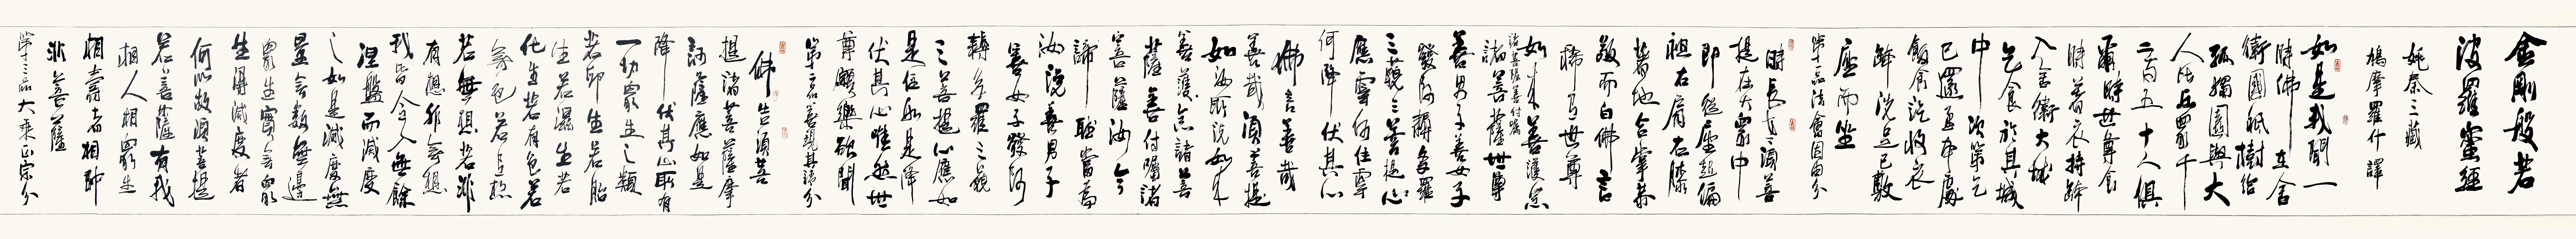 金剛般若
波羅蜜經
姚秦三藏
鳩摩羅什譯
如是我聞一
時佛在舍
衛國祇樹給
孤獨園與大
人比丘眾千
二百五十人俱
爾時世尊食
時著衣持鉢
入舍衛大城
乞食於其城
中次第乞
已還至本處
飯食訖收衣
鉢洗足已敷
座而坐
第一品法會因由分
時長老須菩
提在大眾中
即從座起偏
袒右肩右膝
著地合掌恭
敬而白佛言
稀有世尊
如來善護念
諸菩薩善付囑
諸菩薩世尊
善男子善女子
發阿耨多羅
三藐三菩提心
應云何住云
何降伏其心
佛言善哉
善哉須菩提
如汝所說如來
善護念諸菩
薩善付囑諸
菩薩汝今
諦聽當為
汝說善男子
善女子發阿
耨多羅三藐
三菩提心應如
是住如是降
伏其心唯然世
尊願樂欲聞
第二品善現啟請分
佛告須菩
提諸菩薩摩
訶薩應如是
降伏其心所有
一切眾生之類
若卵生若胎
生若濕生若
化生若有色若
無色若有想
若無想若非
有想非無想
我皆令入無餘
涅槃而滅度
之如是滅度無
量無數無邊
眾生實無眾
生得滅度者
何以故須菩提
若菩薩有我
相人相眾生
相壽者相即
非菩薩
第三品大乘正宗分